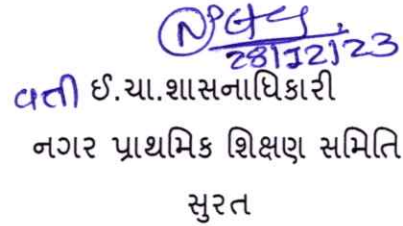 28/12/23
વતી ઈ.ચા.શાસનાધિકારી
નગર પ્રાથમિક શિક્ષણ સમિતિ
સુરત